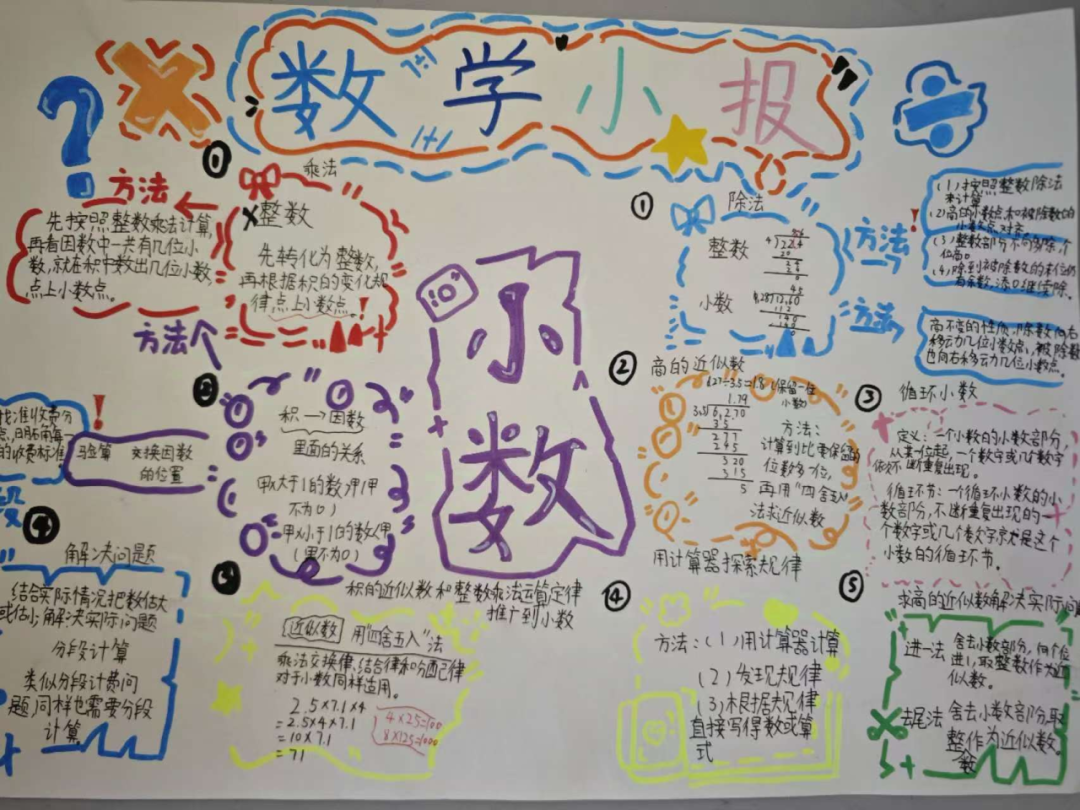 数学小报
1+1
1+1
?
×
÷
①
乘法
方法
先按照整数乘法计算,
再看因数中一共有几位小
数,就在积中数出几位小数
点上小数点。
×整数
先转化为整数,
再根据积的变化规
律点上小数点。!
方法
小数
②
积→因数
里面的关系
甲×大于1的数>甲
不为0)
甲×小于1的数<甲
(甲不为0)
验算 交换因数
的位置
!
找准收费分
的收费标准
段
④
解决问题
结合实际情况把数估大
或估小;解决实际问题
分段计算
类似分段计费问
题,同样也需要分段
计算
③
积的近似数和整数乘法运算定律
推广到小数
近似数 用四舍五入"法
乘法交换律、结合律和分配律
对于小数同样适用。
2.5×7.1×4
=2.5×4×7.1
=10×7.1
=71
4×25=100
8×125=1000
①
除法
整数
小数
方法
方法
!
(1)按照整数除法
来计算
(2)商的小数点和被除数的
小数点对齐
(3)整数部分不够除,个
位商0
(4)除到被除数的末位仍
有余数,添0继续除。
商不变的性质,除数向右
移动几位小数点,被除数
也向右移动几位小数点。
②
商的近似数
6.27÷3.5≈1.8(保留一位
小数)
1.79
6,2.70
35
277
245
320
315
5
方法:
计算到比要保留的
位数多一位,
再用"四舍五入"
法求近似数
③
循环小数
定义:一个小数的小数部分,
从某一位起,一个数字或几个数字
依次不断重复出现。
循环节:一个循环小数的小
数部分,不断重复出现的一
个数字或几个数字就是这个
小数的循环节。
④
用计算器探索规律
方法:(1)用计算器计算
(2)发现规律
(3)根据规律
直接写得数或算
式
⑤
求商的近似数解决实际问
进一法 舍去小数部分,向个位
进1,取整数作为近
似数。
去尾法 舍去小数部分取
整作为近似数